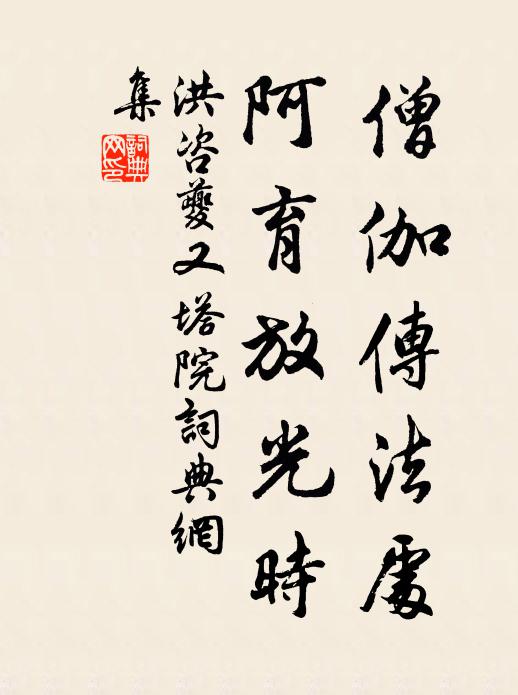 僧伽傳法處
阿育放光時
洪咨夔又塔院詞典網
集
詞典網印